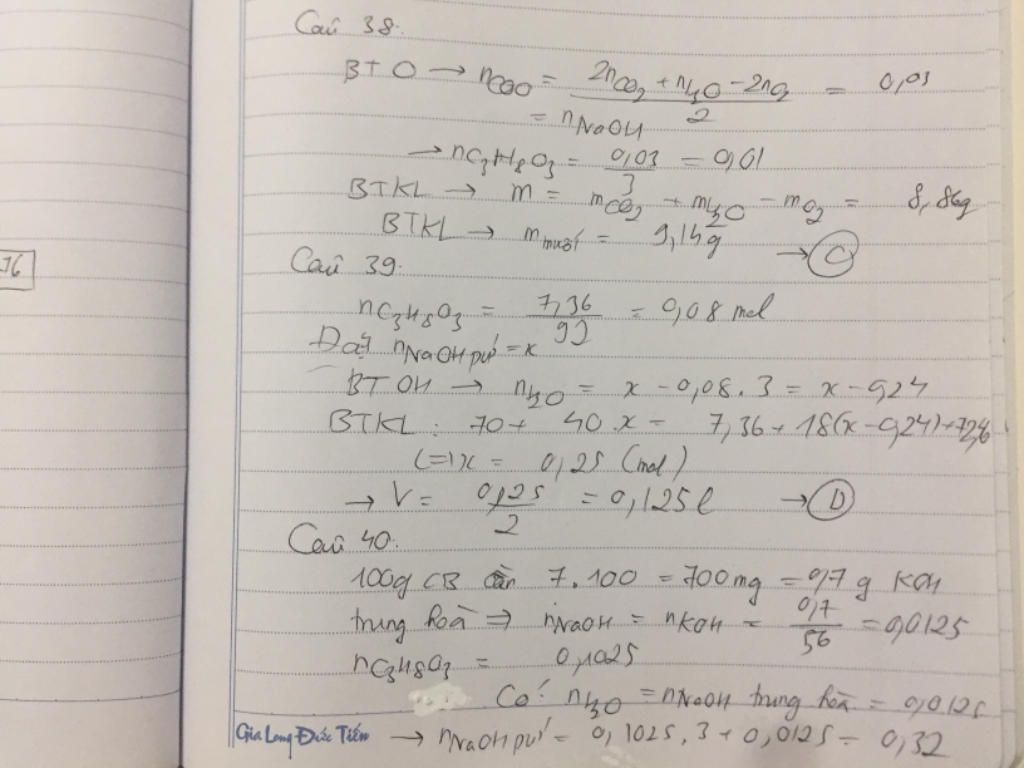 Câu 38.
BT O → nCOO = (2nCO2 + nH2O - 2nO2)/2 = 0,03
= nNaOH
→ nC3H8O3 = 0,03/3 = 0,01
BTKL → m = mCO2 + mH2O - mO2 = 8,86g
BTKL → m muối = 9,14g → C
Câu 39.
76
nC3H8O3 = 7,36/92 = 0,08 mol
Đặt nNaOH pứ = x
BT OH → nH2O = x - 0,08.3 = x - 0,24
BTKL: 70 + 40.x = 7,36 + 18(x - 0,24) + 72,46
<=> x = 0,25 (mol)
→ V = 0,25/2 = 0,125l → D
Câu 40.
100g CB cần 7.100 = 700mg = 0,7g KOH
trung hoà ⇒ nNaOH = nKOH = 0,7/56 = 0,0125
nC3H8O3 = 0,1025
Có: nH2O = nNaOH trung hoà = 0,0125
Gia Long Đức Tiến → nNaOH pứ = 0,1025.3 + 0,0125 = 0,32